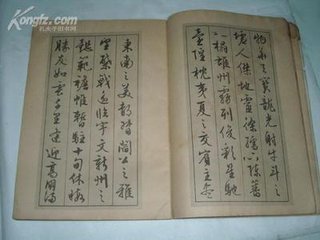 Kongfz.com
物華天寶龍光射牛斗之
墟人傑地靈徐孺下陳蕃
之榻雄州霧列俊彩星馳
臺隍枕夷夏之交賓主盡
東南之美都督閻公之雅
望棨戟遙臨宇文新州之
懿範襜帷暫駐十旬休暇
勝友如雲千里逢迎高朋滿